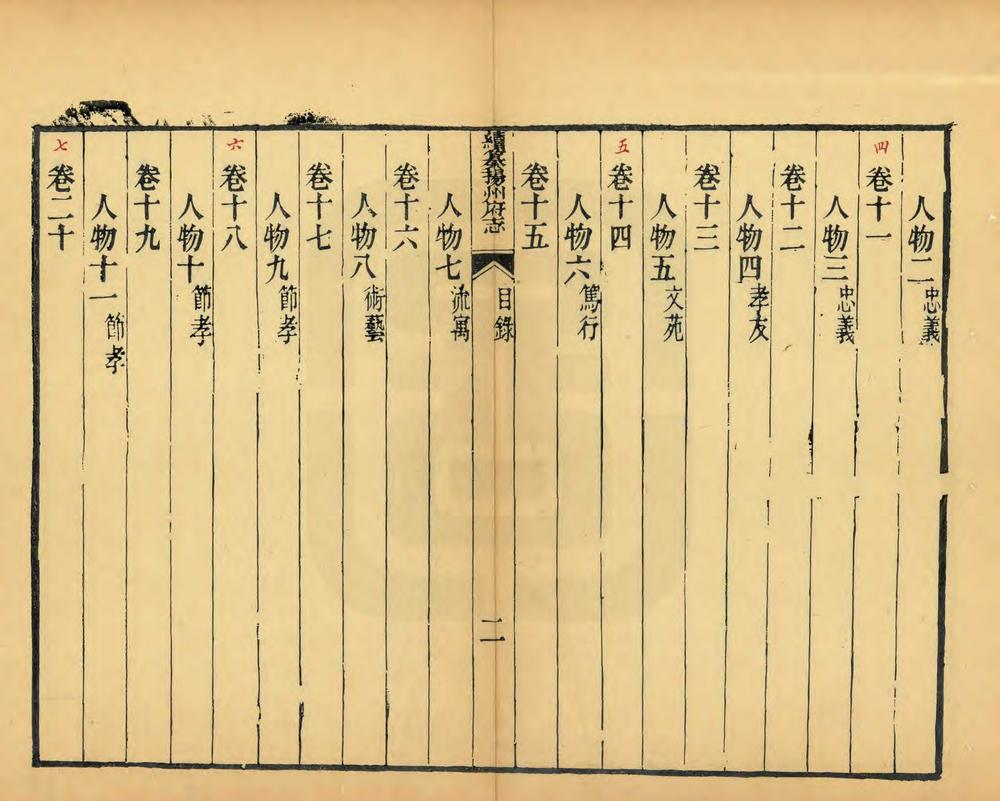 人物二忠義
四
卷十一
人物三忠義
卷十二
人物四孝友
卷十三
人物五文苑
五
卷十四
人物六篤行
卷十五
續纂揚州府志
目錄
二
人物七流寓
卷十六
人物八術藝
卷十七
人物九節孝
六
卷十八
人物十節孝
卷十九
人物十一節孝
七
卷二十